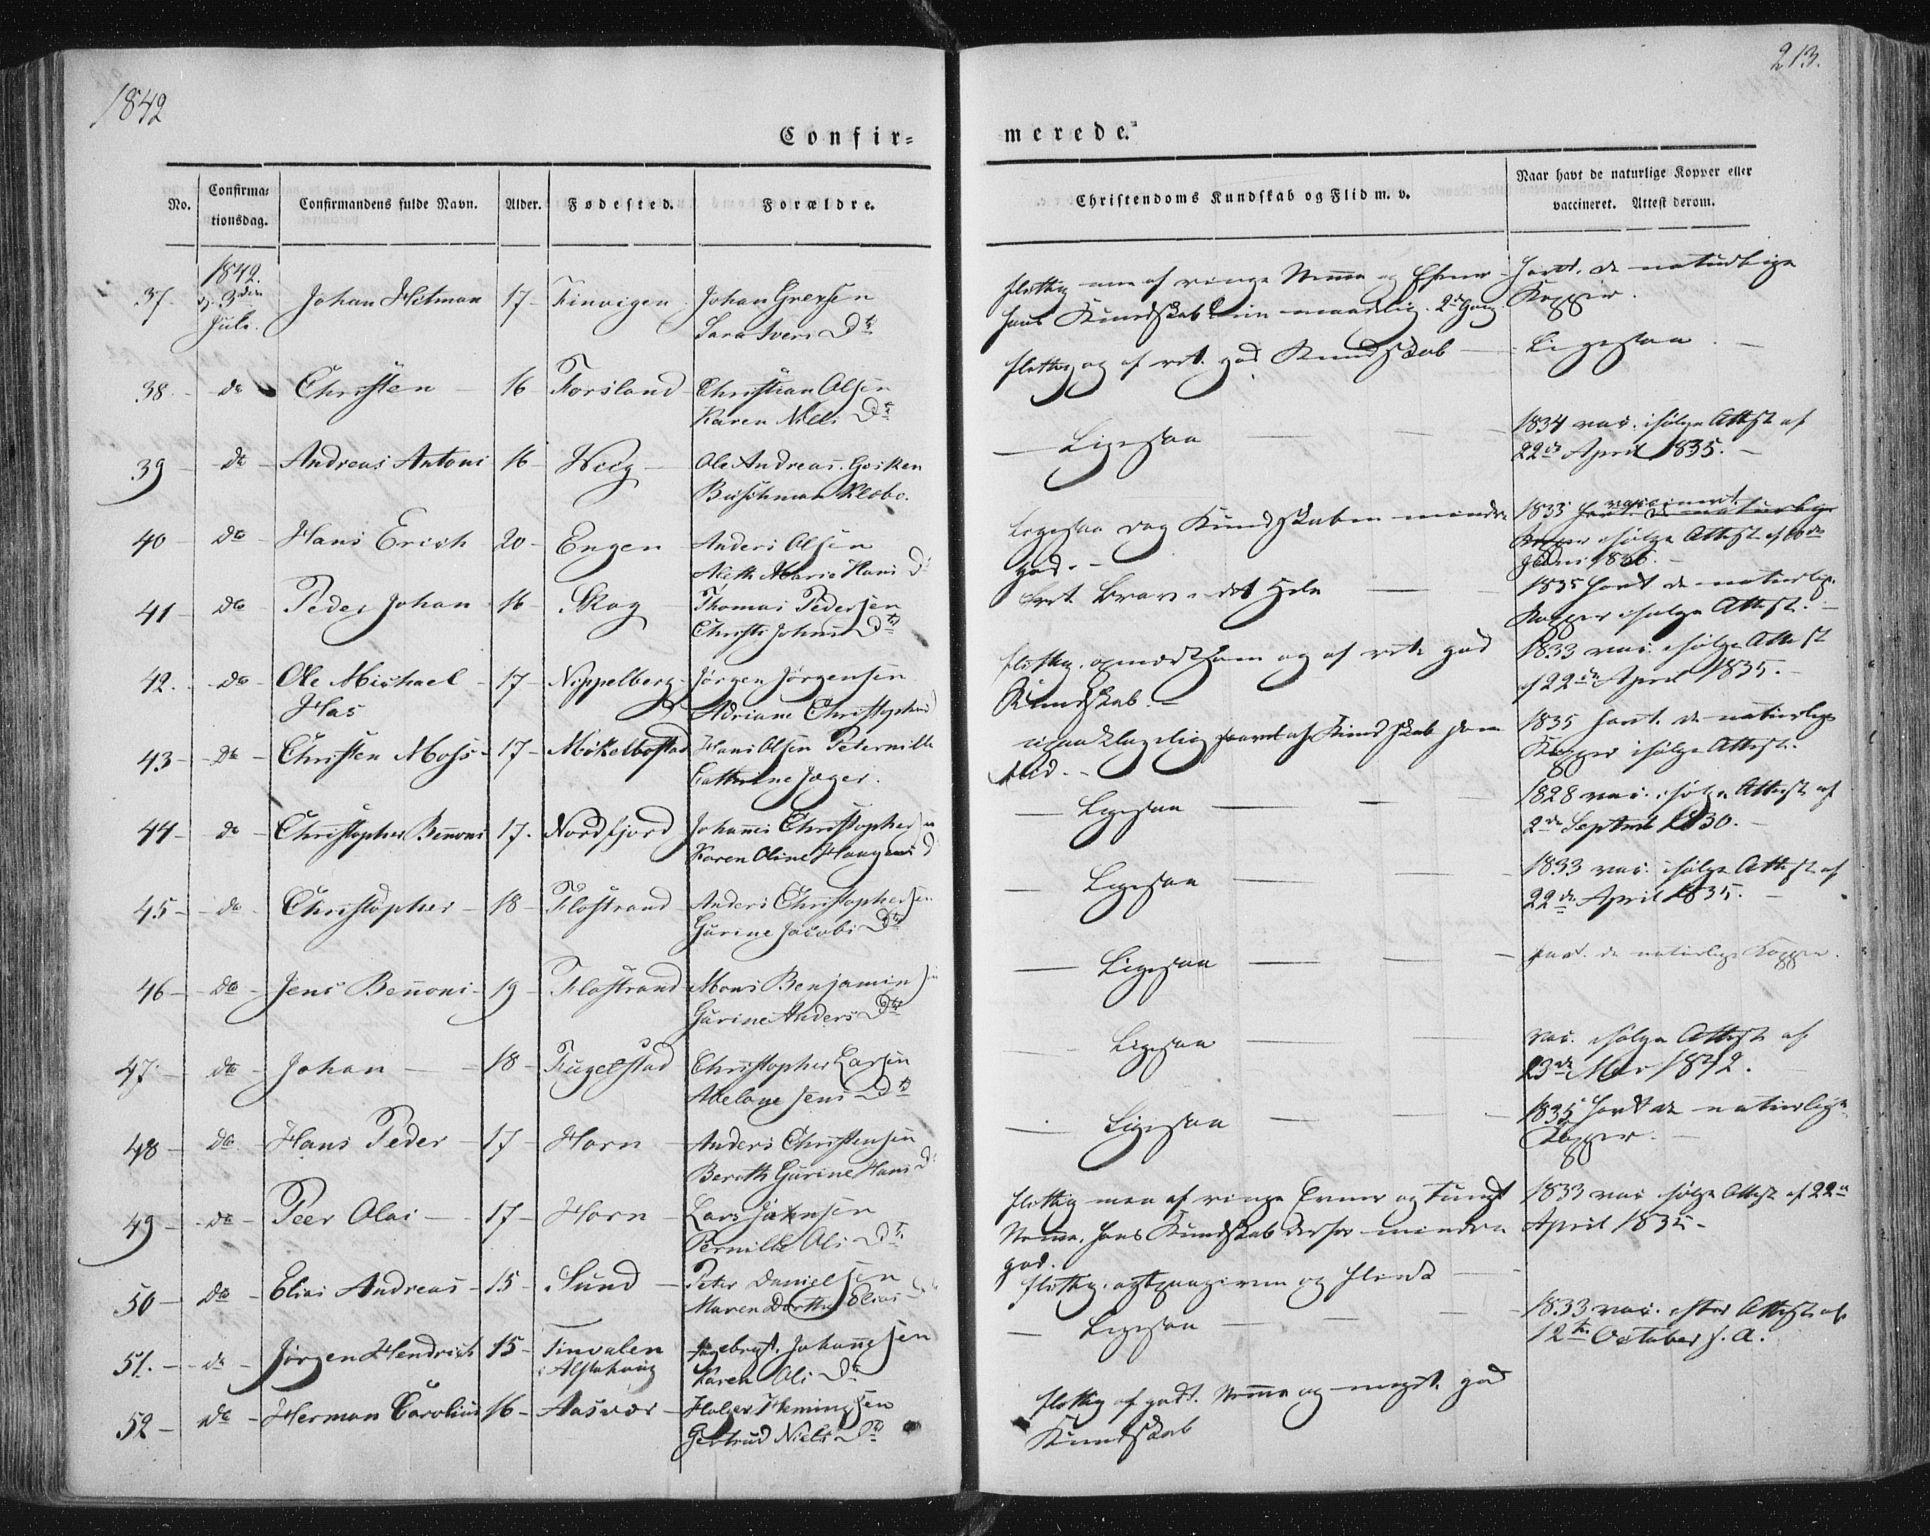 1842
213.
Confir-
merede.
No.
Confirma-
tionsdag.
Confirmandens fulde Navn.
Alder.
Fødested.
Forældre.
Christendoms Kundskab og Flid m. v.
Naar havt de naturlige Kopper eller
vaccineret. Attest derom.
1842.
37. d. 3die Juli. Johan Hitman 17 Finvigen Johan Grersen
Sara Ivers Dtr
flittig men af ringe Nemme og Evner
hans Kundskab maadelig. 2den Gang
havt de naturlige
Kopper.
38. do Christen 16 Forsland Christian Olsen
Karen Niels Dtr
flittig og af ret god Kundskab
Ligesaa
39 do Andreas Antoni 16 Hæg Ole Andreas Gosken
Buschman Klæbo.
Ligesaa
1834 vac. ifølge Attest af
22de April 1835.
40 do Hans Erich 20 Engen Anders Olsen
Aleth Marie Hans D
Ligesaa dog Kundskaben mindre
god.
1833 vaccineret
ifølge Attest af
Juni 1836.
41 do Peder Johan 16 Skog Thomas Pedersen
Christi Johns Dtr
ret brav i det Hele
1835 havt de naturlige
Kopper ifølge Attest.
42. do Ole Michael 17 Nippelberg Jørgen Jørgensen
Has
Adriane Christophers
flittig, opmærksom og af ret god
Kundskab.
1833 vac. ifølge Attest
af 22de April 1835.
43 do Christen Moss 17 Mikelbostad Hans Olsen Peternille
Cathrine Jæger.
upaaklagelig saavel af Kundskab som
Flid.
1835 havt de naturlige
Kopper ifølge Attest.
44 do Christopher Bennoni 17. Nordfjord Johannes Christophersen
Karen Oline Haagens D
Ligesaa
1828 vac. ifølge Attest af
2de Septmb 1830.
45 do Christopher 18 Flostrand Anders Christophersen
Gurine Jacobs Dtr
Ligesaa
1833 vac. ifølge Attest af
22de April 1835.
46 do Jens Bennoni 19 Flostrand Mons Benjamins
Gurine Anders Dtr
Ligesaa
havt de naturlige Kopper.
47 do Johan 18 Fugelstad Christopher Larsen
Abelone Jens Dtr
Ligesaa
vac. ifølge Attest af
23de Mai 1842.
48 do Hans Peder 17 Horn Anders Christensen
Bereth Gurine Hans D
Ligesaa
1835 havt de naturlige
Kopper.
49 do Peer Olai 17 Horn Lars Johnsen
Pernille Ols Dtr
flittig men af ringe Evner og tungt
Nemme, hans Kundskab derfor mindre
god.
1833 vac. ifølge Attest af 22de
April 1835
50 do Elias Andreas 15 Sund Peter Danielsen
Maren Dorthe Elias
flittig og
51. do Jørgen Hendrich 15 Finvalen Ingebrigt Johannesen
i Alstahoug
Karen Ols Dtr
Ligesaa
1833 vac. efter Attest af
12te October s. A.
52 do Herman Carolius 16 Aasvær Holger Hemingsen
Gertrud Niels Dtr
flittig af godt Nemme og meget god
Kundskab